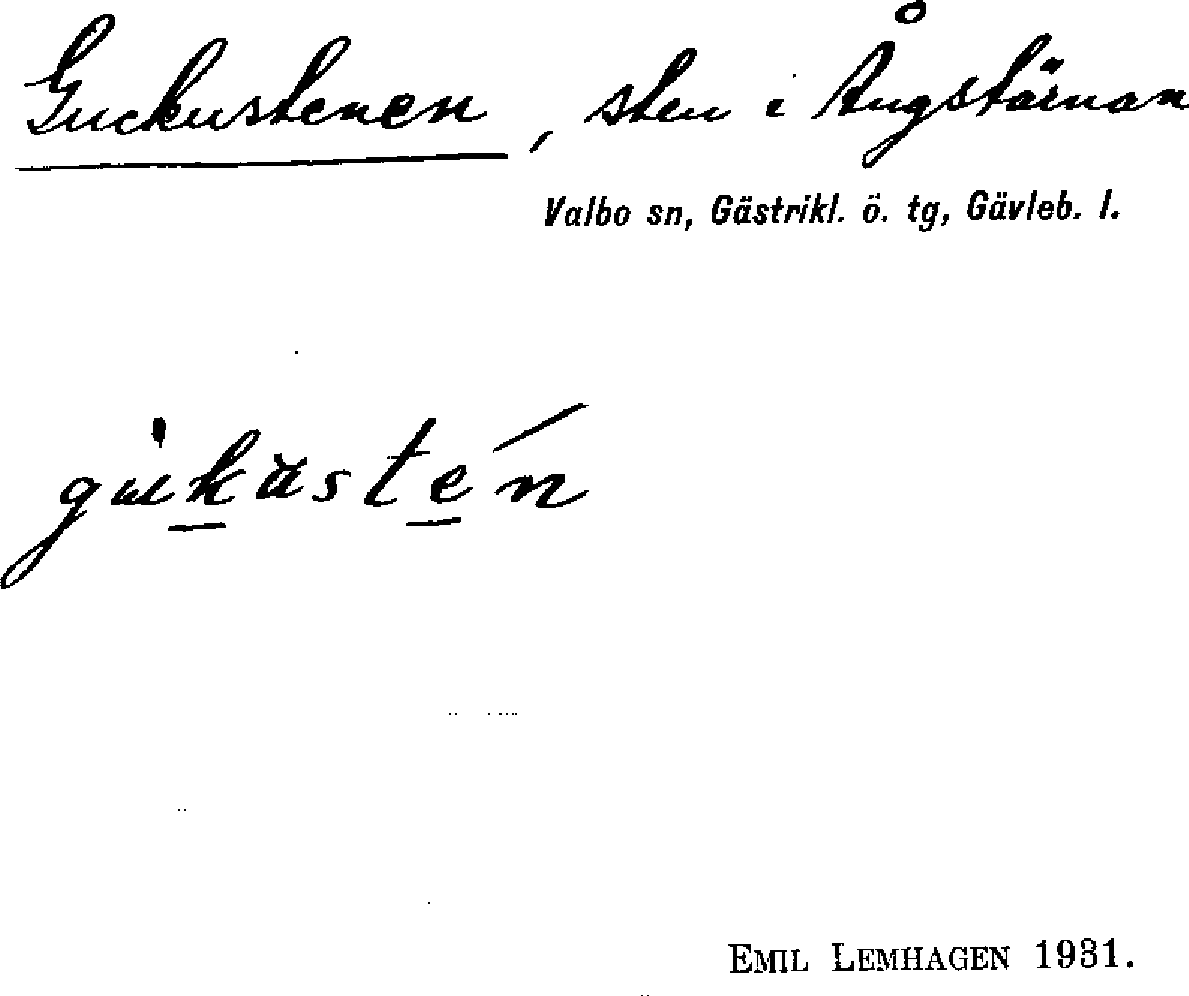 Guckustenen, sten i Ångstärnan
Valbo sn, Gästrikl. ö. tg, Gävleb. l.
gukustén
EMIL LEMHAGEN 1931.